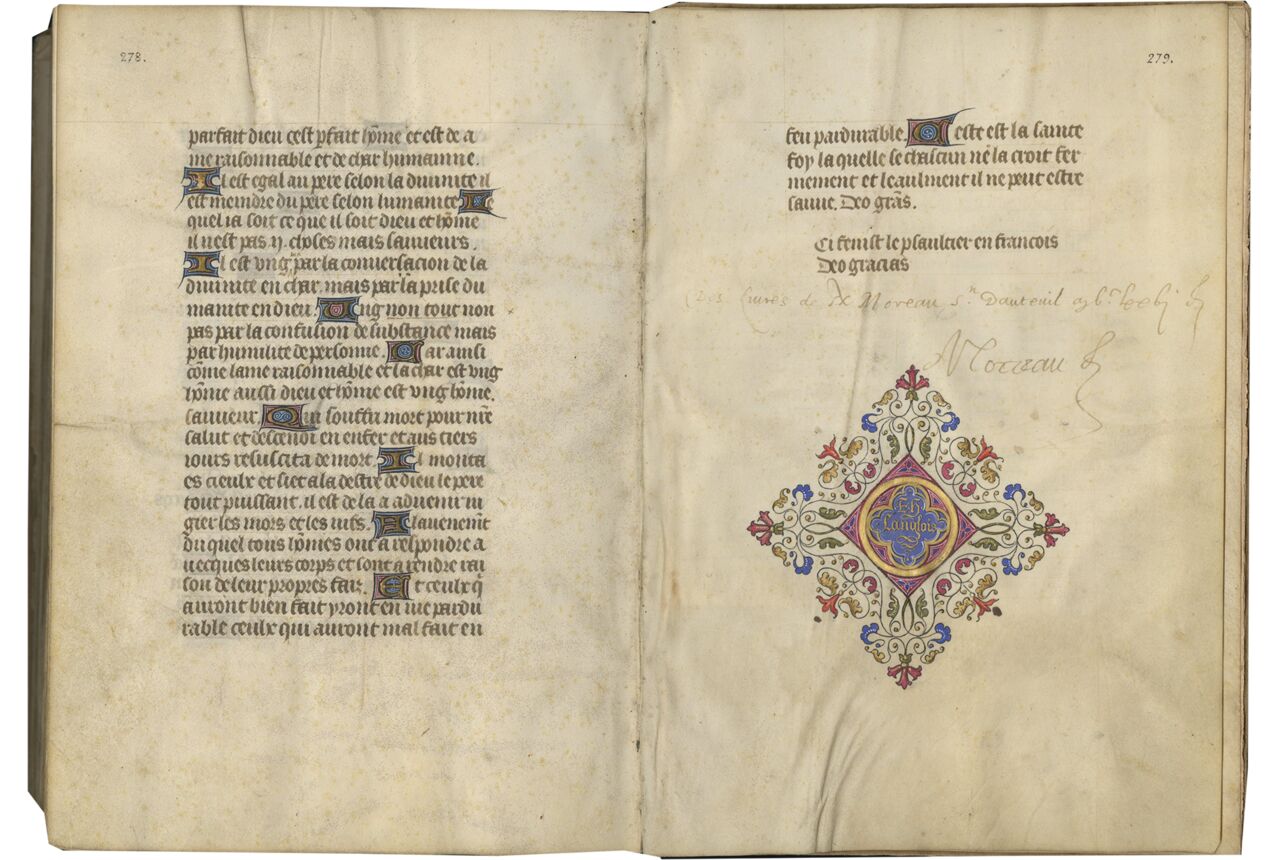 278.
parfait dieu cest pfait hõme et est de a
me raisonnable et de char humainne.
Il est egal au pere selon la diuinite il
est meindre du pere selon humanite Le
quel ia soit ce que il soit dieu et hõme
il nest pas ij. choses mais sauueurs.
Il est vng par la conuersacion de la
diuinite en char. mais par la prise du
manite en dieu. Vng non tout non
pas par la confusion de substance mais
par humilite de personne. Car ainsi
cõme lame raisonnable et la char est vng
hõme aussi dieu et hõme est vng hõme.
sauueur. Qui souffri mort pour nr̃e
salut et descendi en enfer et aus tiers
iours resuscita de mort. Il monta
es cieulx et siet a la destre de dieu le pere
tout puissant. il est de la a aduenir iu
gier les mors et les uifs. A lauenemt
du quel tous hõmes ont a respondre a
uecques leurs corps et sont a rendre rai
son de leur propres faiz. Et ceulx q̃
auront bien fait yront en uie pardu
rable ceulx qui auront mal fait en
279.
feu pardurable. Ceste est la sainte
foy la quelle se chascun ne la croit fer
mement et leaulment il ne peut estre
sauue. Deo grãs.
Ci fenist le psaultier en francois
Deo gracias
Des liures de Moreau sr Dauteuil
Moreau
Eh
Langlois